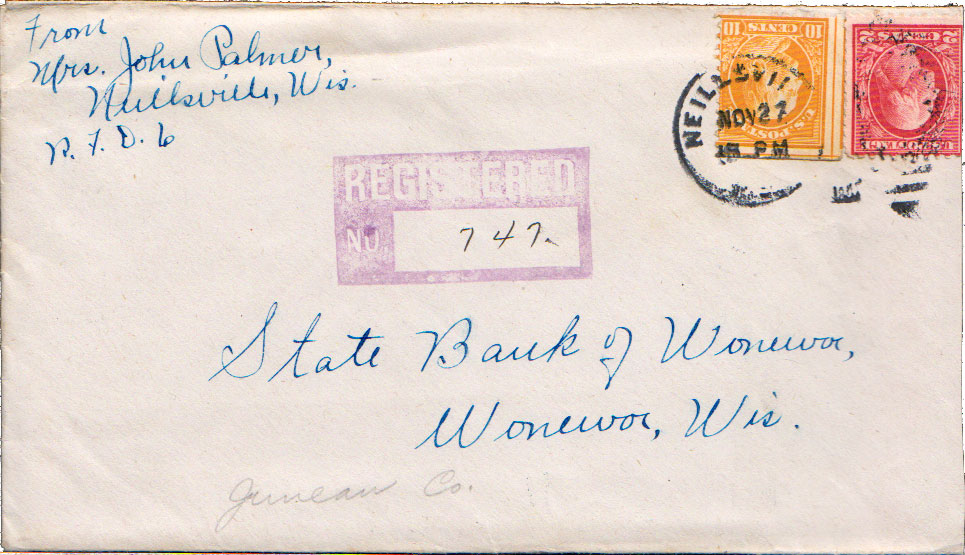 From
Mrs. John Palmer,
Neillsville, Wis.
R. F. D. 6
10 CENTS 10
2 2
U.S. POST
NEILLSVIL
NOV 27
PM
REGISTERED
NO. 747.
State Bank of Wonewoc,
Wonewoc, Wis.
Juneau Co.